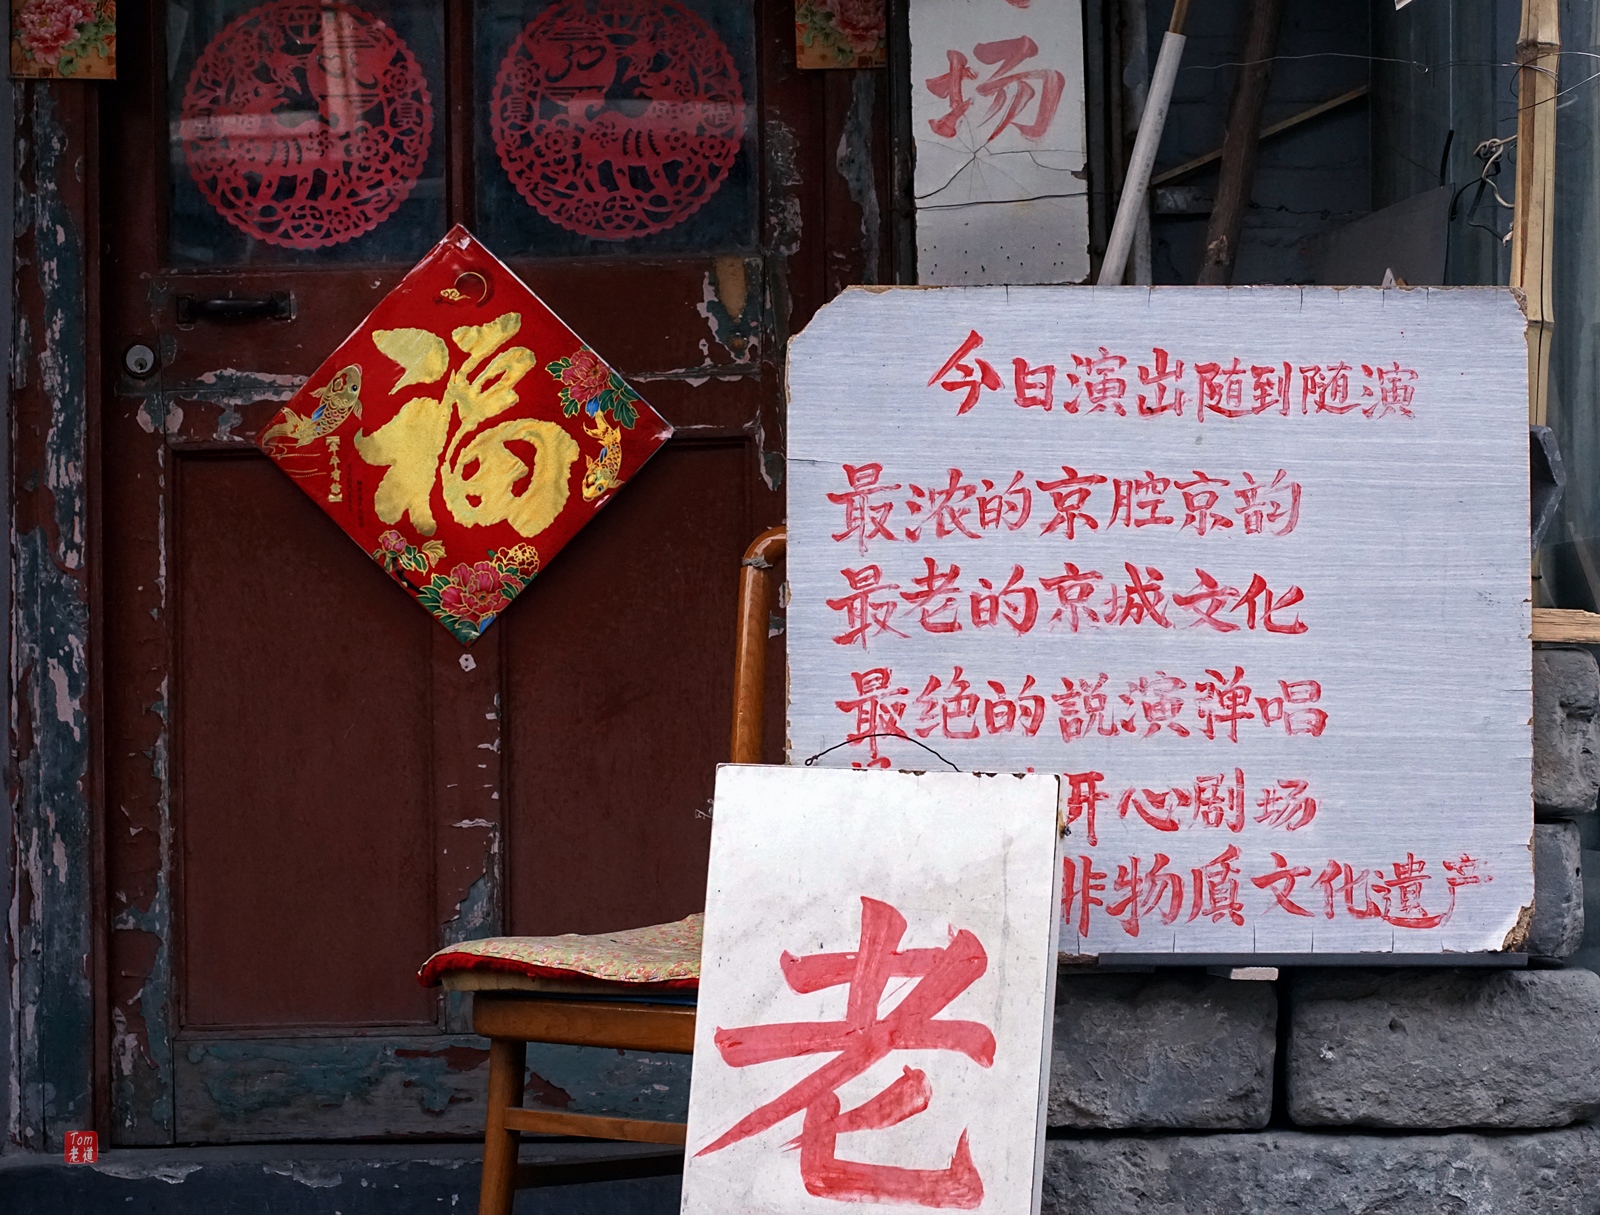 场
福
年年有餘
今日演出随到随演
最浓的京腔京韵
最老的京城文化
最绝的説演弹唱
开心剧场
非物质文化遺产
老
Tom
老道